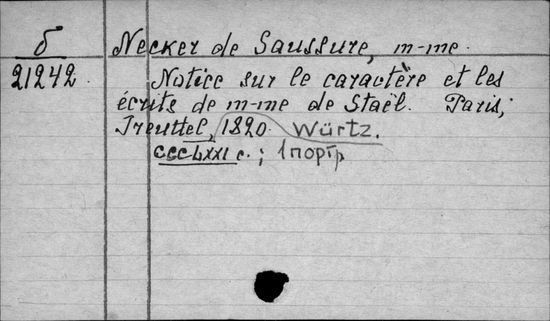 б
21242
Necker de Saussure, m-me.
Notice sur le caractère et les
écrits de m-me de Staël. Paris,
Treuttel, 1820. Würtz.
CCCLXXI c.; 1 портр